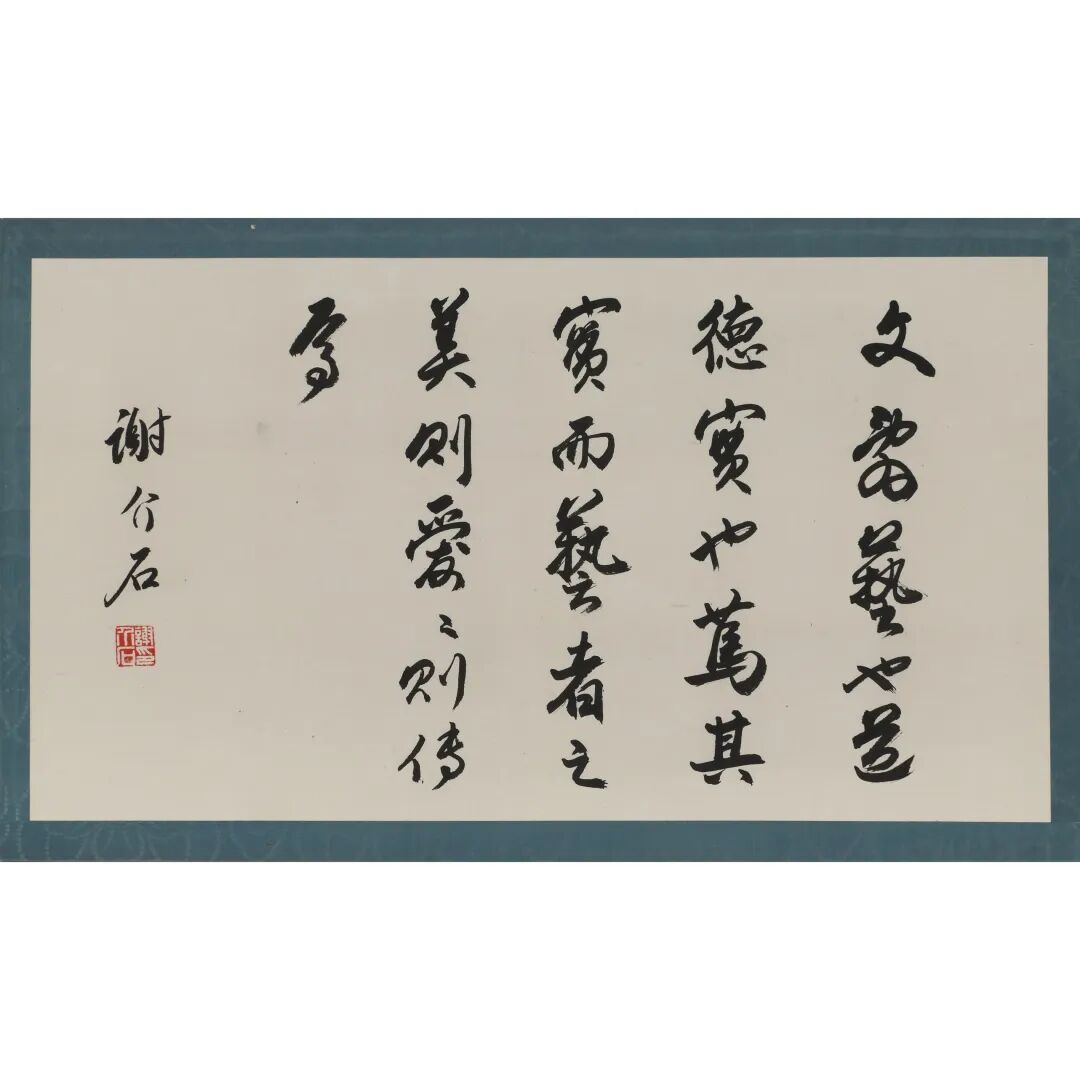 文辭藝也道
德實也篤其
實而藝者之
美則愛〻則傳
焉
謝介石
謝印介石